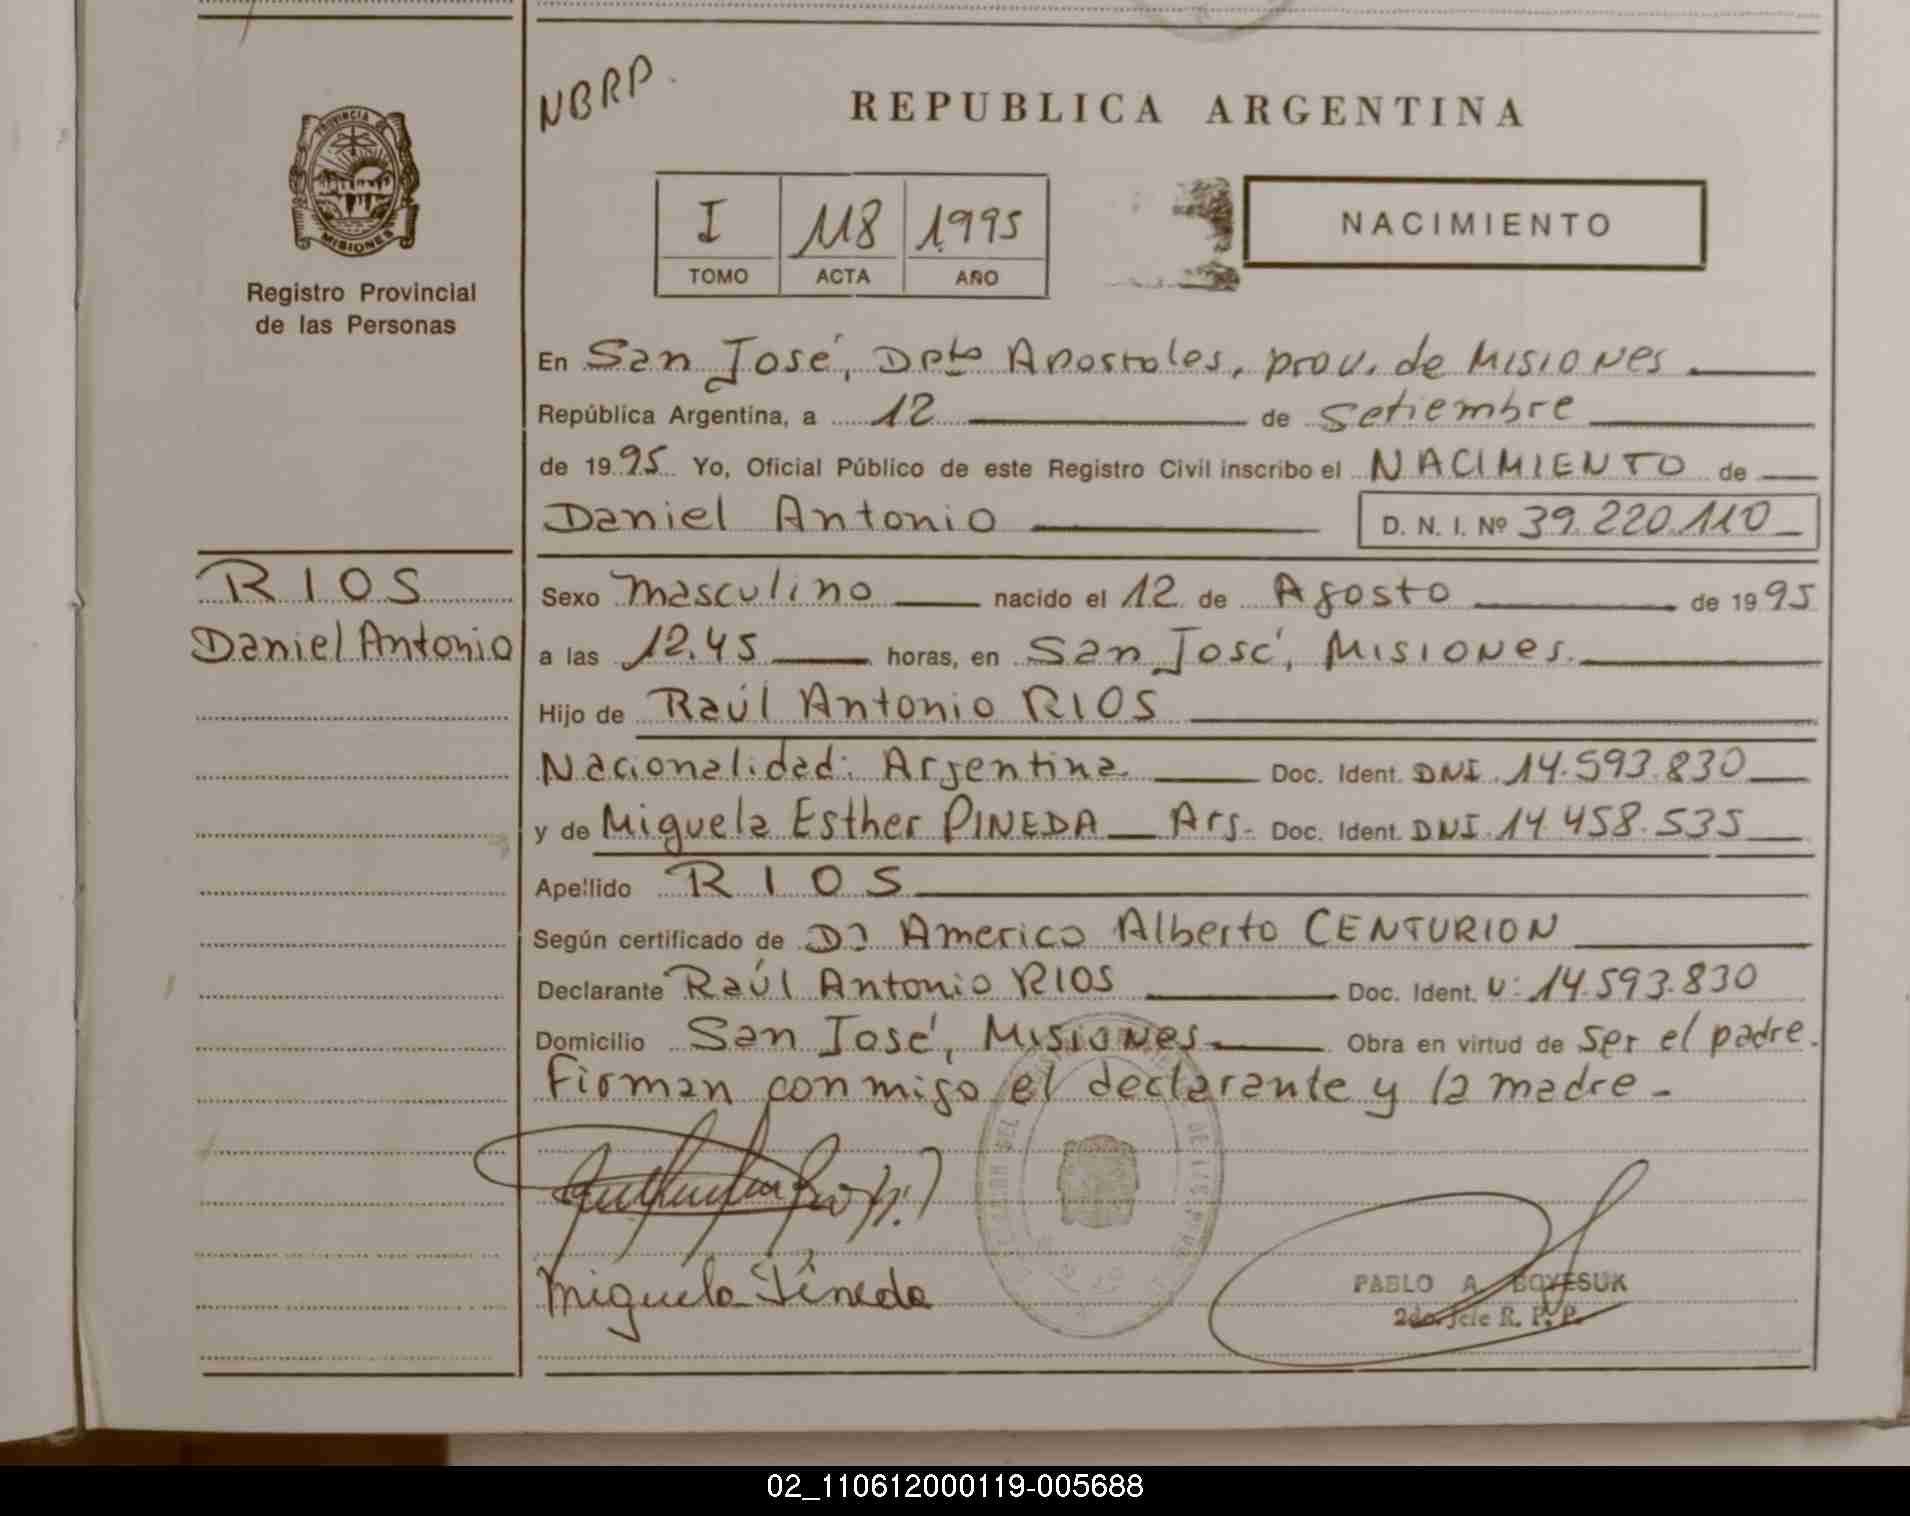 NBRP.
REPUBLICA ARGENTINA
PROVINCIA DE
MISIONES
Registro Provincial
de las Personas
I 118 1995
TOMO ACTA AÑO
NACIMIENTO
En San José, Dpto Apostoles, prov. de Misiones
República Argentina, a 12 de Setiembre
de 1995 Yo, Oficial Público de este Registro Civil inscribo el NACIMIENTO de
Daniel Antonio D. N. I. Nº 39.220.110
RIOS
Daniel Antonio
Sexo Masculino nacido el 12 de Agosto de 1995
a las 12.45 horas, en San José, Misiones.
Hijo de Raúl Antonio RIOS
Nacionalidad: Argentina Doc. Ident. DNI 14.593.830
y de Miguela Esther PINEDA Arg. Doc. Ident. DNI 14.458.535
Apellido RIOS
Según certificado de Americo Alberto CENTURION
Declarante Raúl Antonio RIOS Doc. Ident. 14.593.830
Domicilio San José, Misiones Obra en virtud de ser el padre.
Firman conmigo el declarante y la madre.
Miguela Pineda
PABLO A. BOYESUK
2do. Jefe R. P. P.
02_110612000119-005688